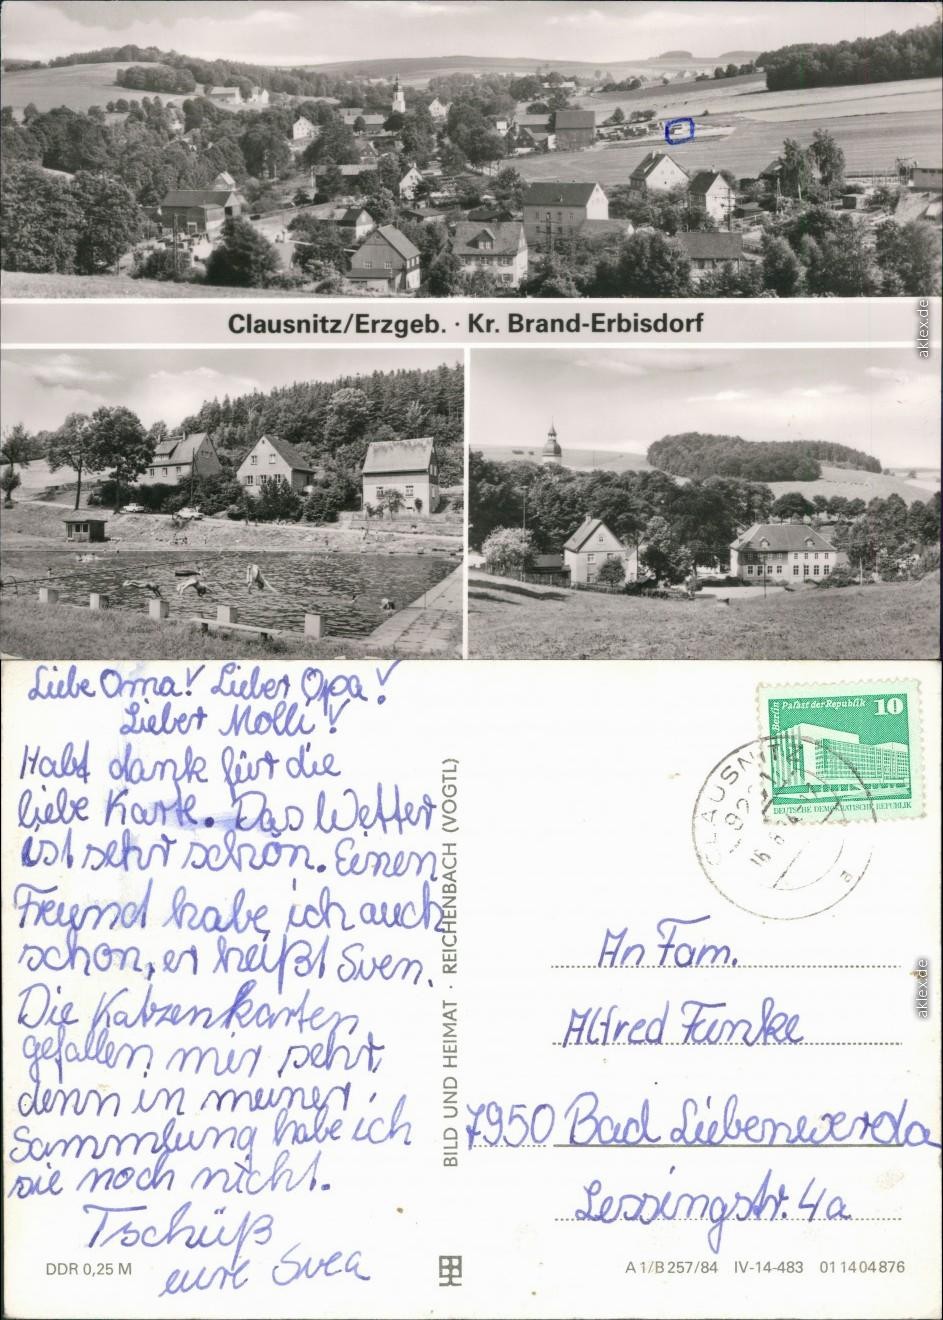 Clausnitz/Erzgeb. · Kr. Brand-Erbisdorf
aklex.de
Liebe Oma! Lieber Opa!
Lieber Molli!
Habt dank für die
liebe Karte. Das Wetter
ist sehr schön. Einen
Freund habe ich auch
schon, er heißt Sven.
Die Katzenkarten
gefallen mir sehr,
denn in meiner
Sammlung habe ich
sie noch nicht.
Tschüß
eure Svea
DDR 0,25 M
BILD UND HEIMAT · REICHENBACH (VOGTL)
Berlin
Palast der Republik
10
DEUTSCHE DEMOKRATISCHE REPUBLIK
CLAUSNITZ
An Fam.
Alfred Funke
7950 Bad Liebenwerda
Lessingstr. 4a
A 1/B 257/84 IV-14-483 01 14 04 876
aklex.de